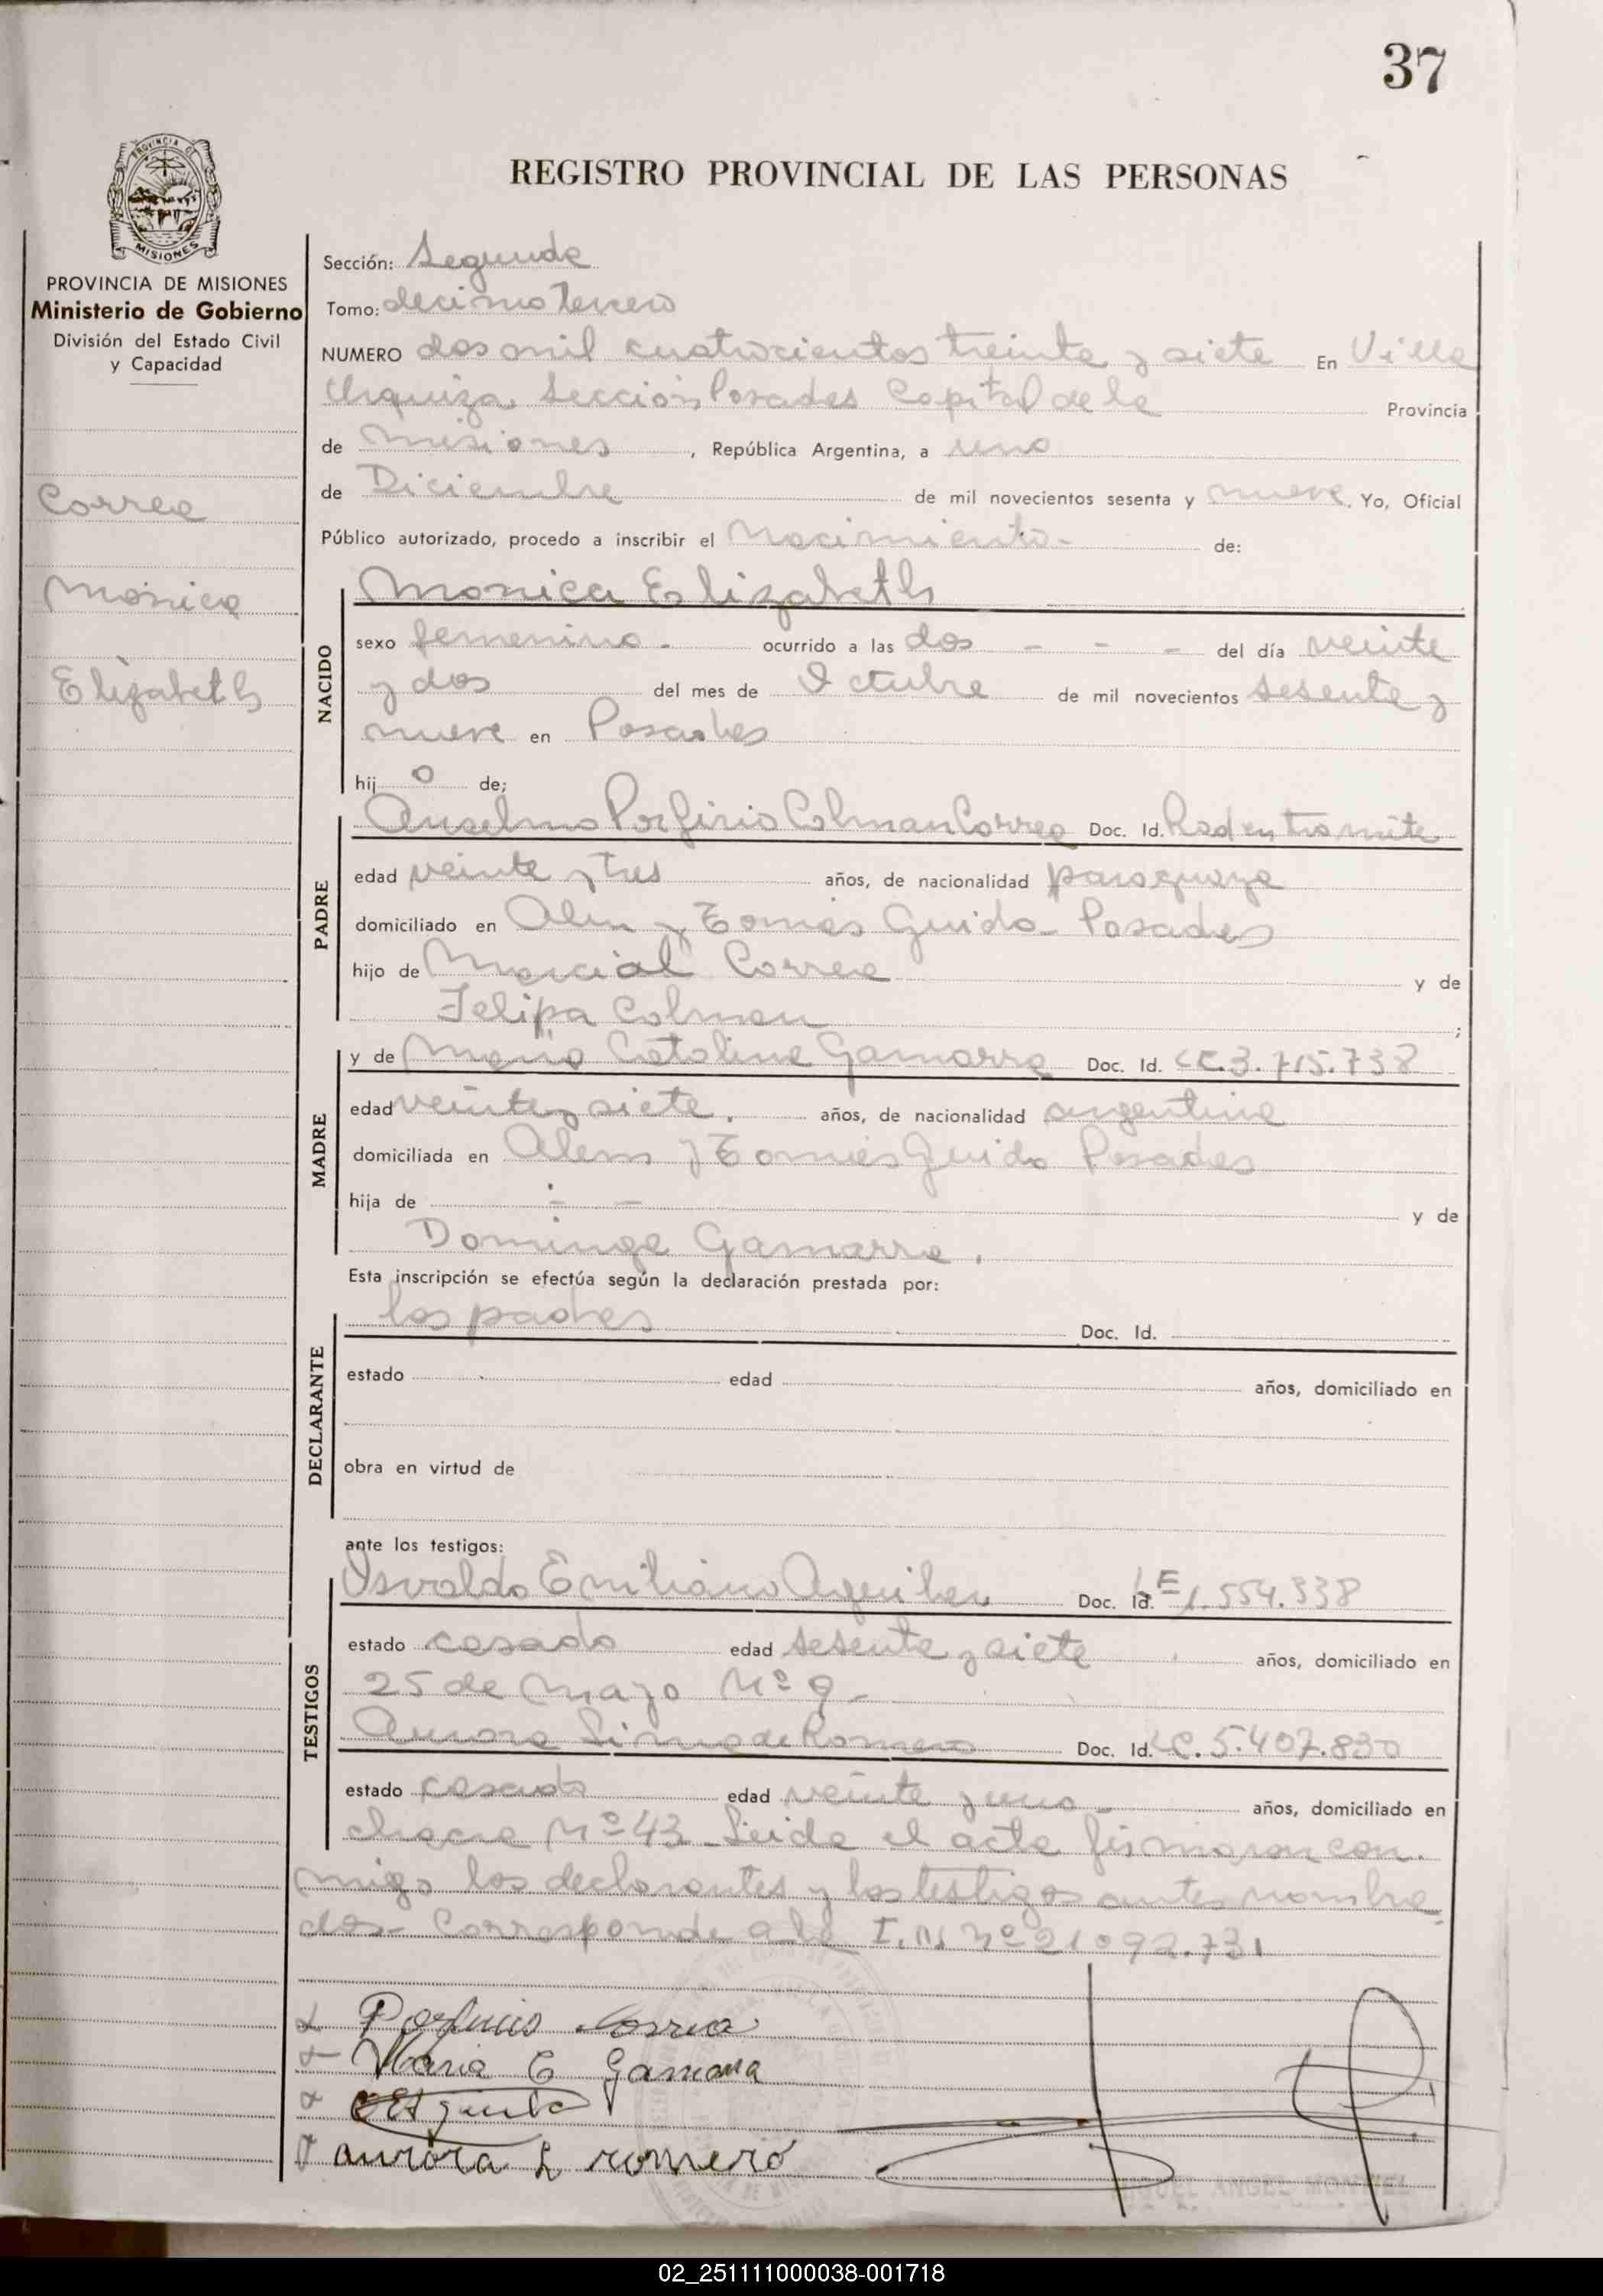 37
REGISTRO PROVINCIAL DE LAS PERSONAS
PROVINCIA DE MISIONES
Ministerio de Gobierno
División del Estado Civil
y Capacidad
Correa
Mónica
Elizabeth
Sección: Segunda
Tomo: decimo tercero
NUMERO dos mil cuatrocientos treinta y siete En Villa
Urquiza Sección Posadas Capital de la Provincia
de Misiones, República Argentina, a uno
de Diciembre de mil novecientos sesenta y nueve. Yo, Oficial
Público autorizado, procedo a inscribir el Nacimiento- de:
NACIDO
Monica Elizabeth
sexo femenino - ocurrido a las dos - - - del día veinte
y dos del mes de Octubre de mil novecientos sesenta y
nueve en Posadas
hij o de;
PADRE
Anselmo Porfirio Colman Correa Doc. Id. Rad en tramite
edad veinte y tres años, de nacionalidad paraguaya
domiciliado en Alem y Tomás Guido - Posadas
hijo de Marcial Correa y de
Felipa Colman ;
MADRE
y de Maria Catalina Gamarra Doc. Id. LC.3.715.738
edad veinte y siete. años, de nacionalidad argentina
domiciliada en Alem y Tomás Guido Posadas
hija de - - y de
Dominga Gamarra.
Esta inscripción se efectúa según la declaración prestada por:
DECLARANTE
los padres Doc. Id.
estado edad años, domiciliado en
obra en virtud de
ante los testigos:
TESTIGOS
Osvaldo Emiliano Doc. Id. LE 1.554.338
estado casado edad sesenta y siete años, domiciliado en
25 de Mayo Nº 9-
Aurora de Romero Doc. Id. LC. 5.407.830
estado casada edad veinte y uno - años, domiciliado en
chacra Nº 43 - Leida el acta firmaron con-
migo los declarantes y los testigos antes nombra-
dos- Corresponde a la I.N Nº 21092.731
Porfirio Correa
Maria C Gamarra
aurora L romero
MIGUEL ANGEL
02_251111000038-001718